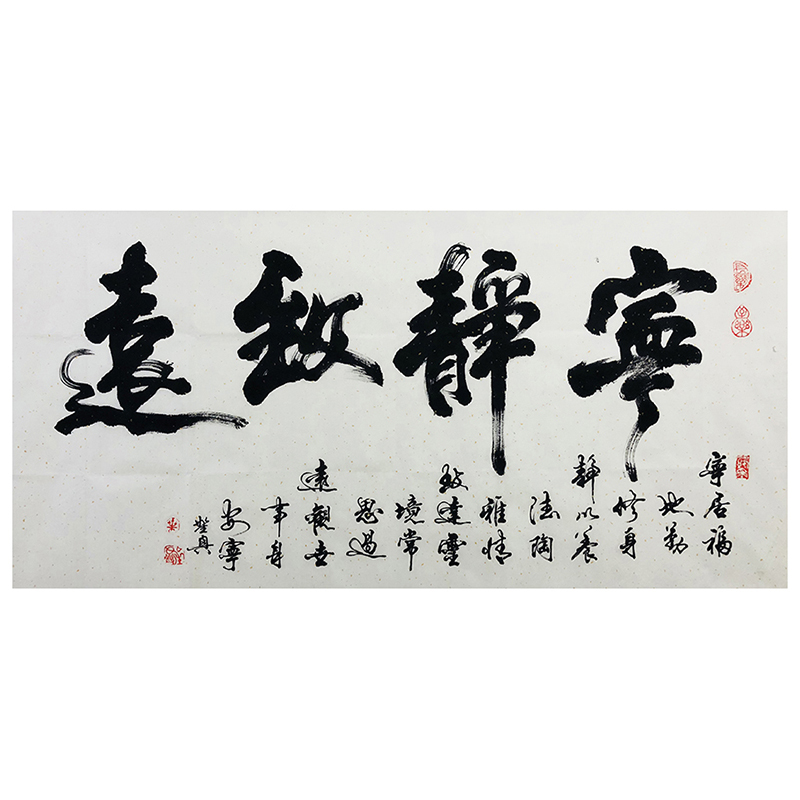 寧靜致遠
寧居福
地勤
修身
靜以養
德陶
雅情
致達靈
境常
思過
遠觀世
事身
安寧